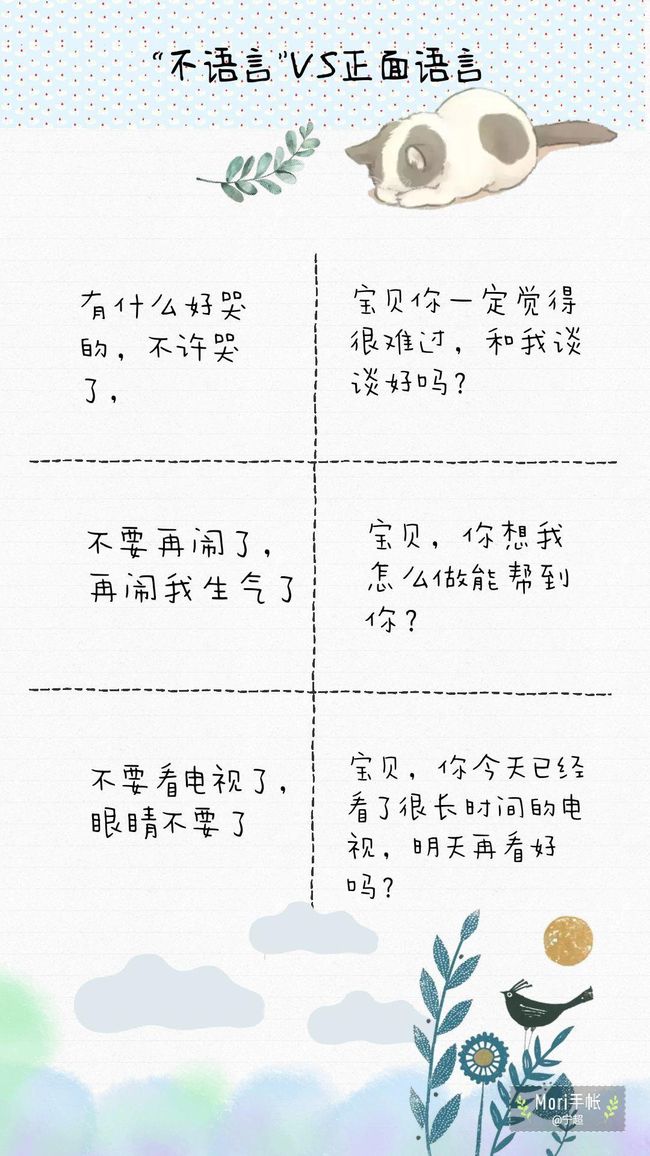 “不语言”VS正面语言
有什么好哭
的，不许哭
了，
宝贝你一定觉得
很难过，和我谈
谈好吗？
不要再闹了，
再闹我生气了
宝贝，你想我
怎么做能帮到
你？
不要看电视了，
眼睛不要了
宝贝，你今天已经
看了很长时间的电
视，明天再看好
吗？
Mori手帐
@宁超